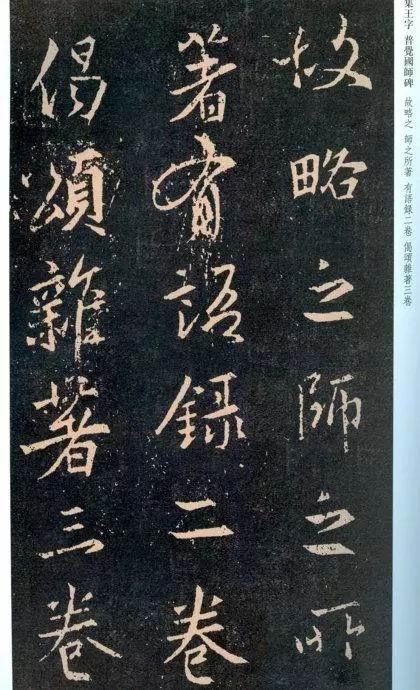 集王字 普覺國師碑 故略之 師之所著 有語録二卷 偈頌雜著三卷
故略之師之所
著有語録二卷
偈頌雜著三卷